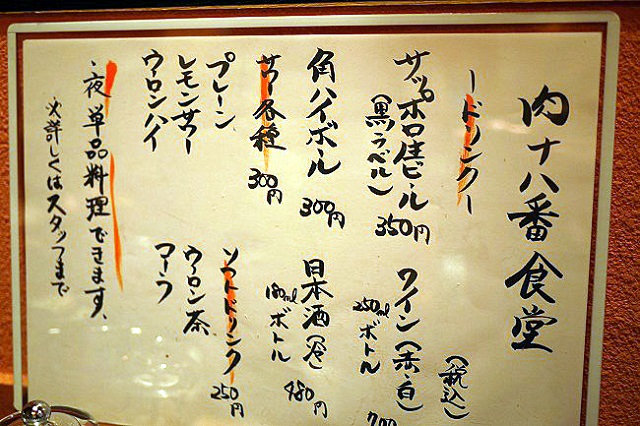 肉十八番食堂
ードリンクー
(税込)
サッポロ生ビール
(黒ラベル)
350円
ワイン(赤・白)
250mlボトル
角ハイボール
300円
日本酒(冷)
180mlボトル
480円
サワー各種
300円
プレーン
レモンサワー
ウーロンハイ
ソフトドリンク
250円
ウーロン茶
コーラ
・夜単品料理できます、
※詳しくはスタッフまで